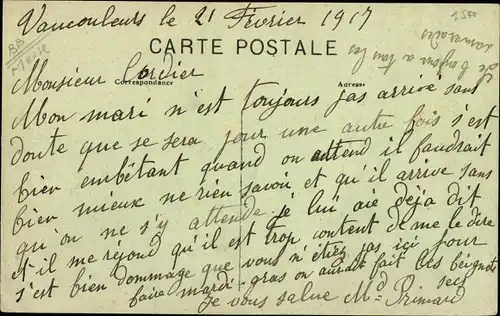 Vaucouleurs le 21 Février 1917
CARTE POSTALE
Correspondance
Adresse
Monsieur Cordier
Mon mari n'est toujours pas arrivé sans
doute que se sera pour une autre fois s'est
bien embêtant quand on attend il faudrait
bien mieux ne rien savoir et qu'il arrive sans
qu'on ne s'y attende je lui aie déja dit
et il me réjond qu'il est trop content de me le dire
s'est bien dommage que vous n'étiez pas ici pour
faire mardi-gras on aurait fait les beignets
secs
Je vous salue Md Primard
le bonjour a tou les
camarades
BB
Meuse